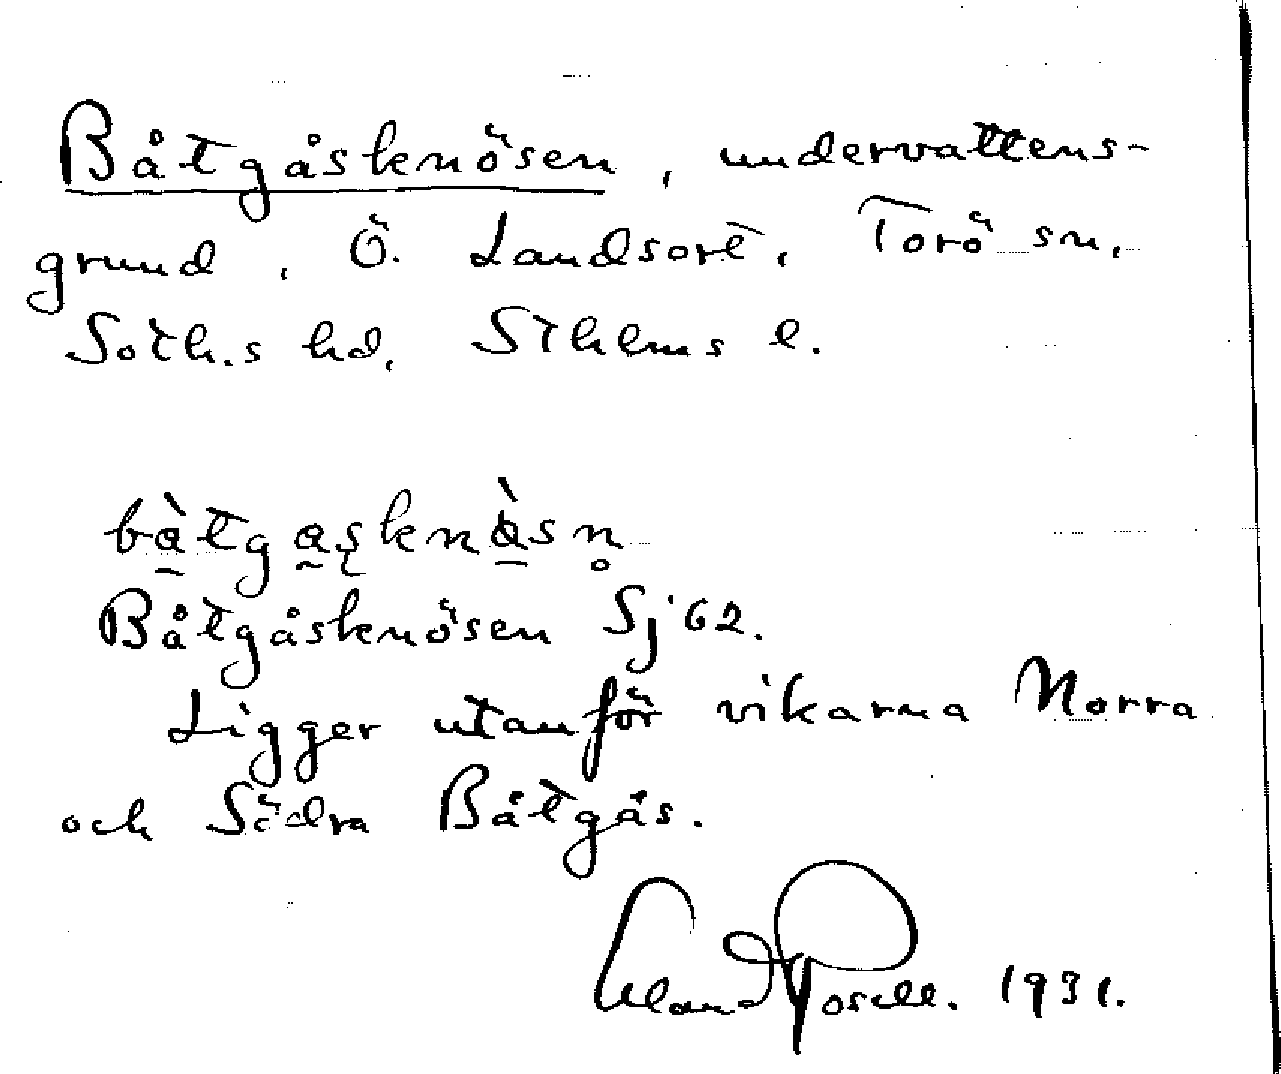 Båtgåsknösen, undervattens-
grund, Ö. Landsort, Torö sn,
Soth.s hd, Sthlms l.
bàtgasknàsn
Båtgåsknösen Sj 62.
Ligger utanför vikarna Norra
och Södra Båtgås.
Erland Rosell. 1931.